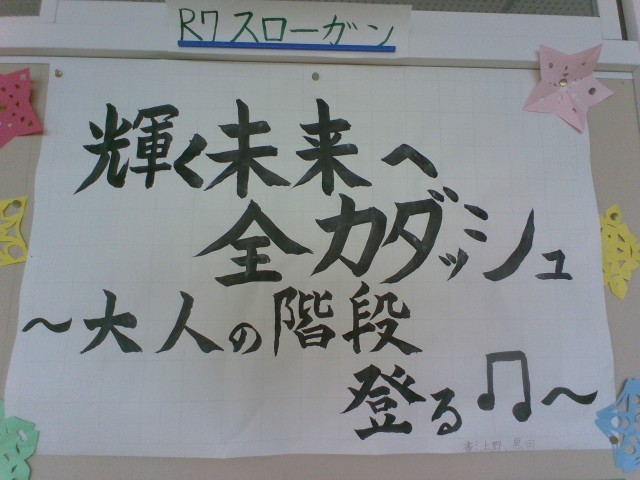 R7スローガン
輝く未来へ
全力ダッシュ
～大人の階段
登る♫～
書：上野 黒田